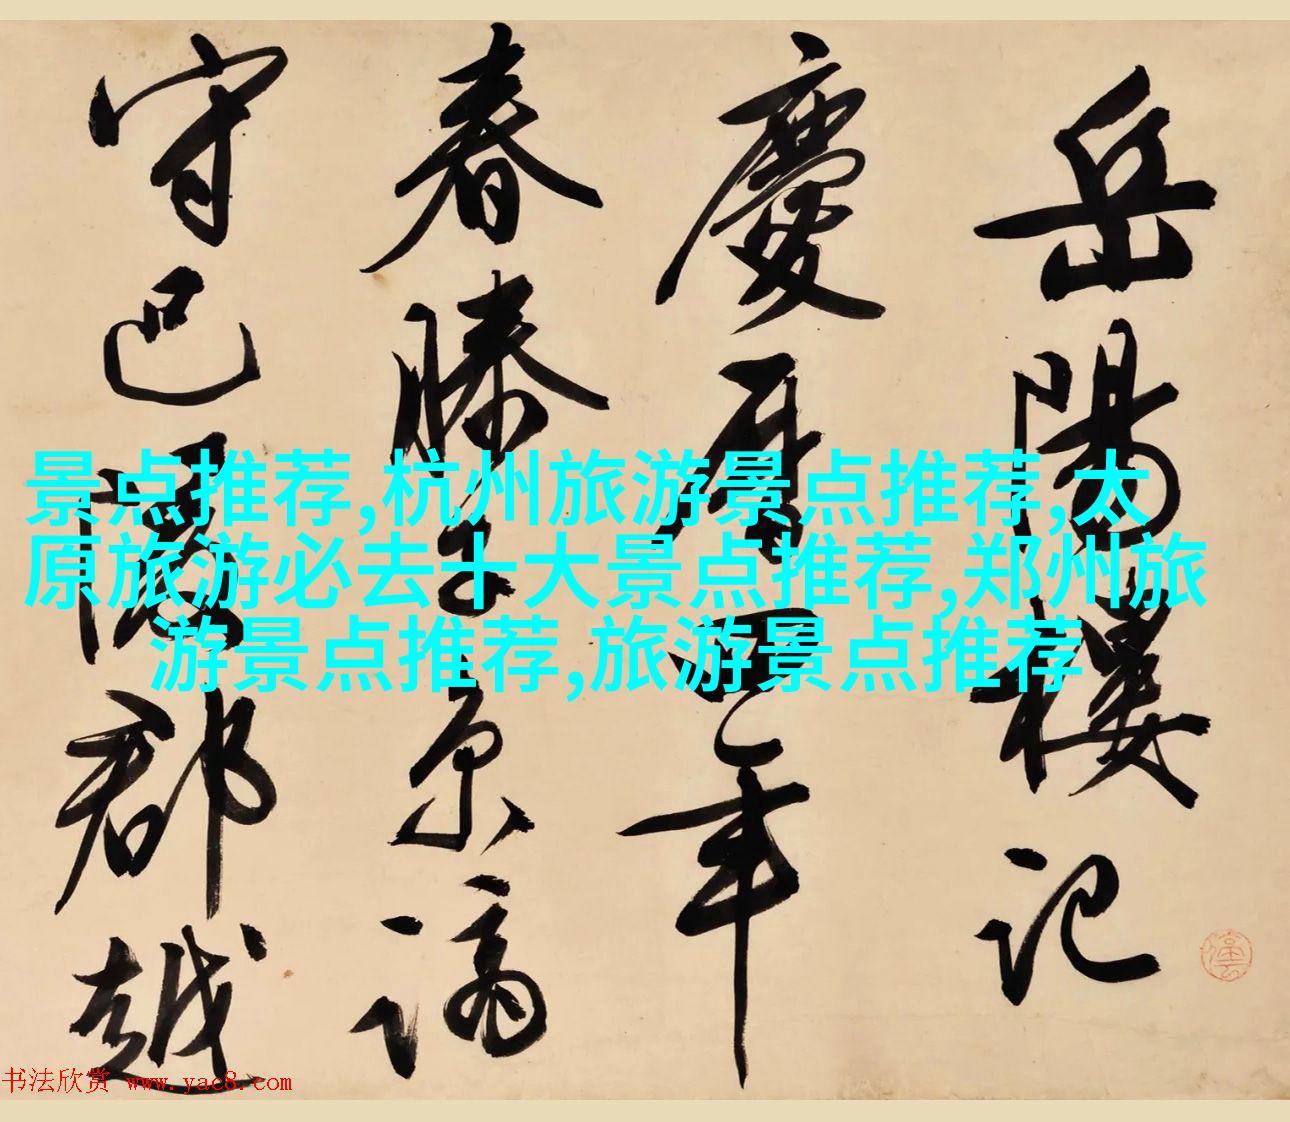 岳陽樓記
慶曆四年
春滕子京謫
守巴陵郡越
景点推荐,杭州旅游景点推荐,太
原旅游必去十大景点推荐,郑州旅
游景点推荐,旅游景点推荐
书法欣赏 www.yac8.com